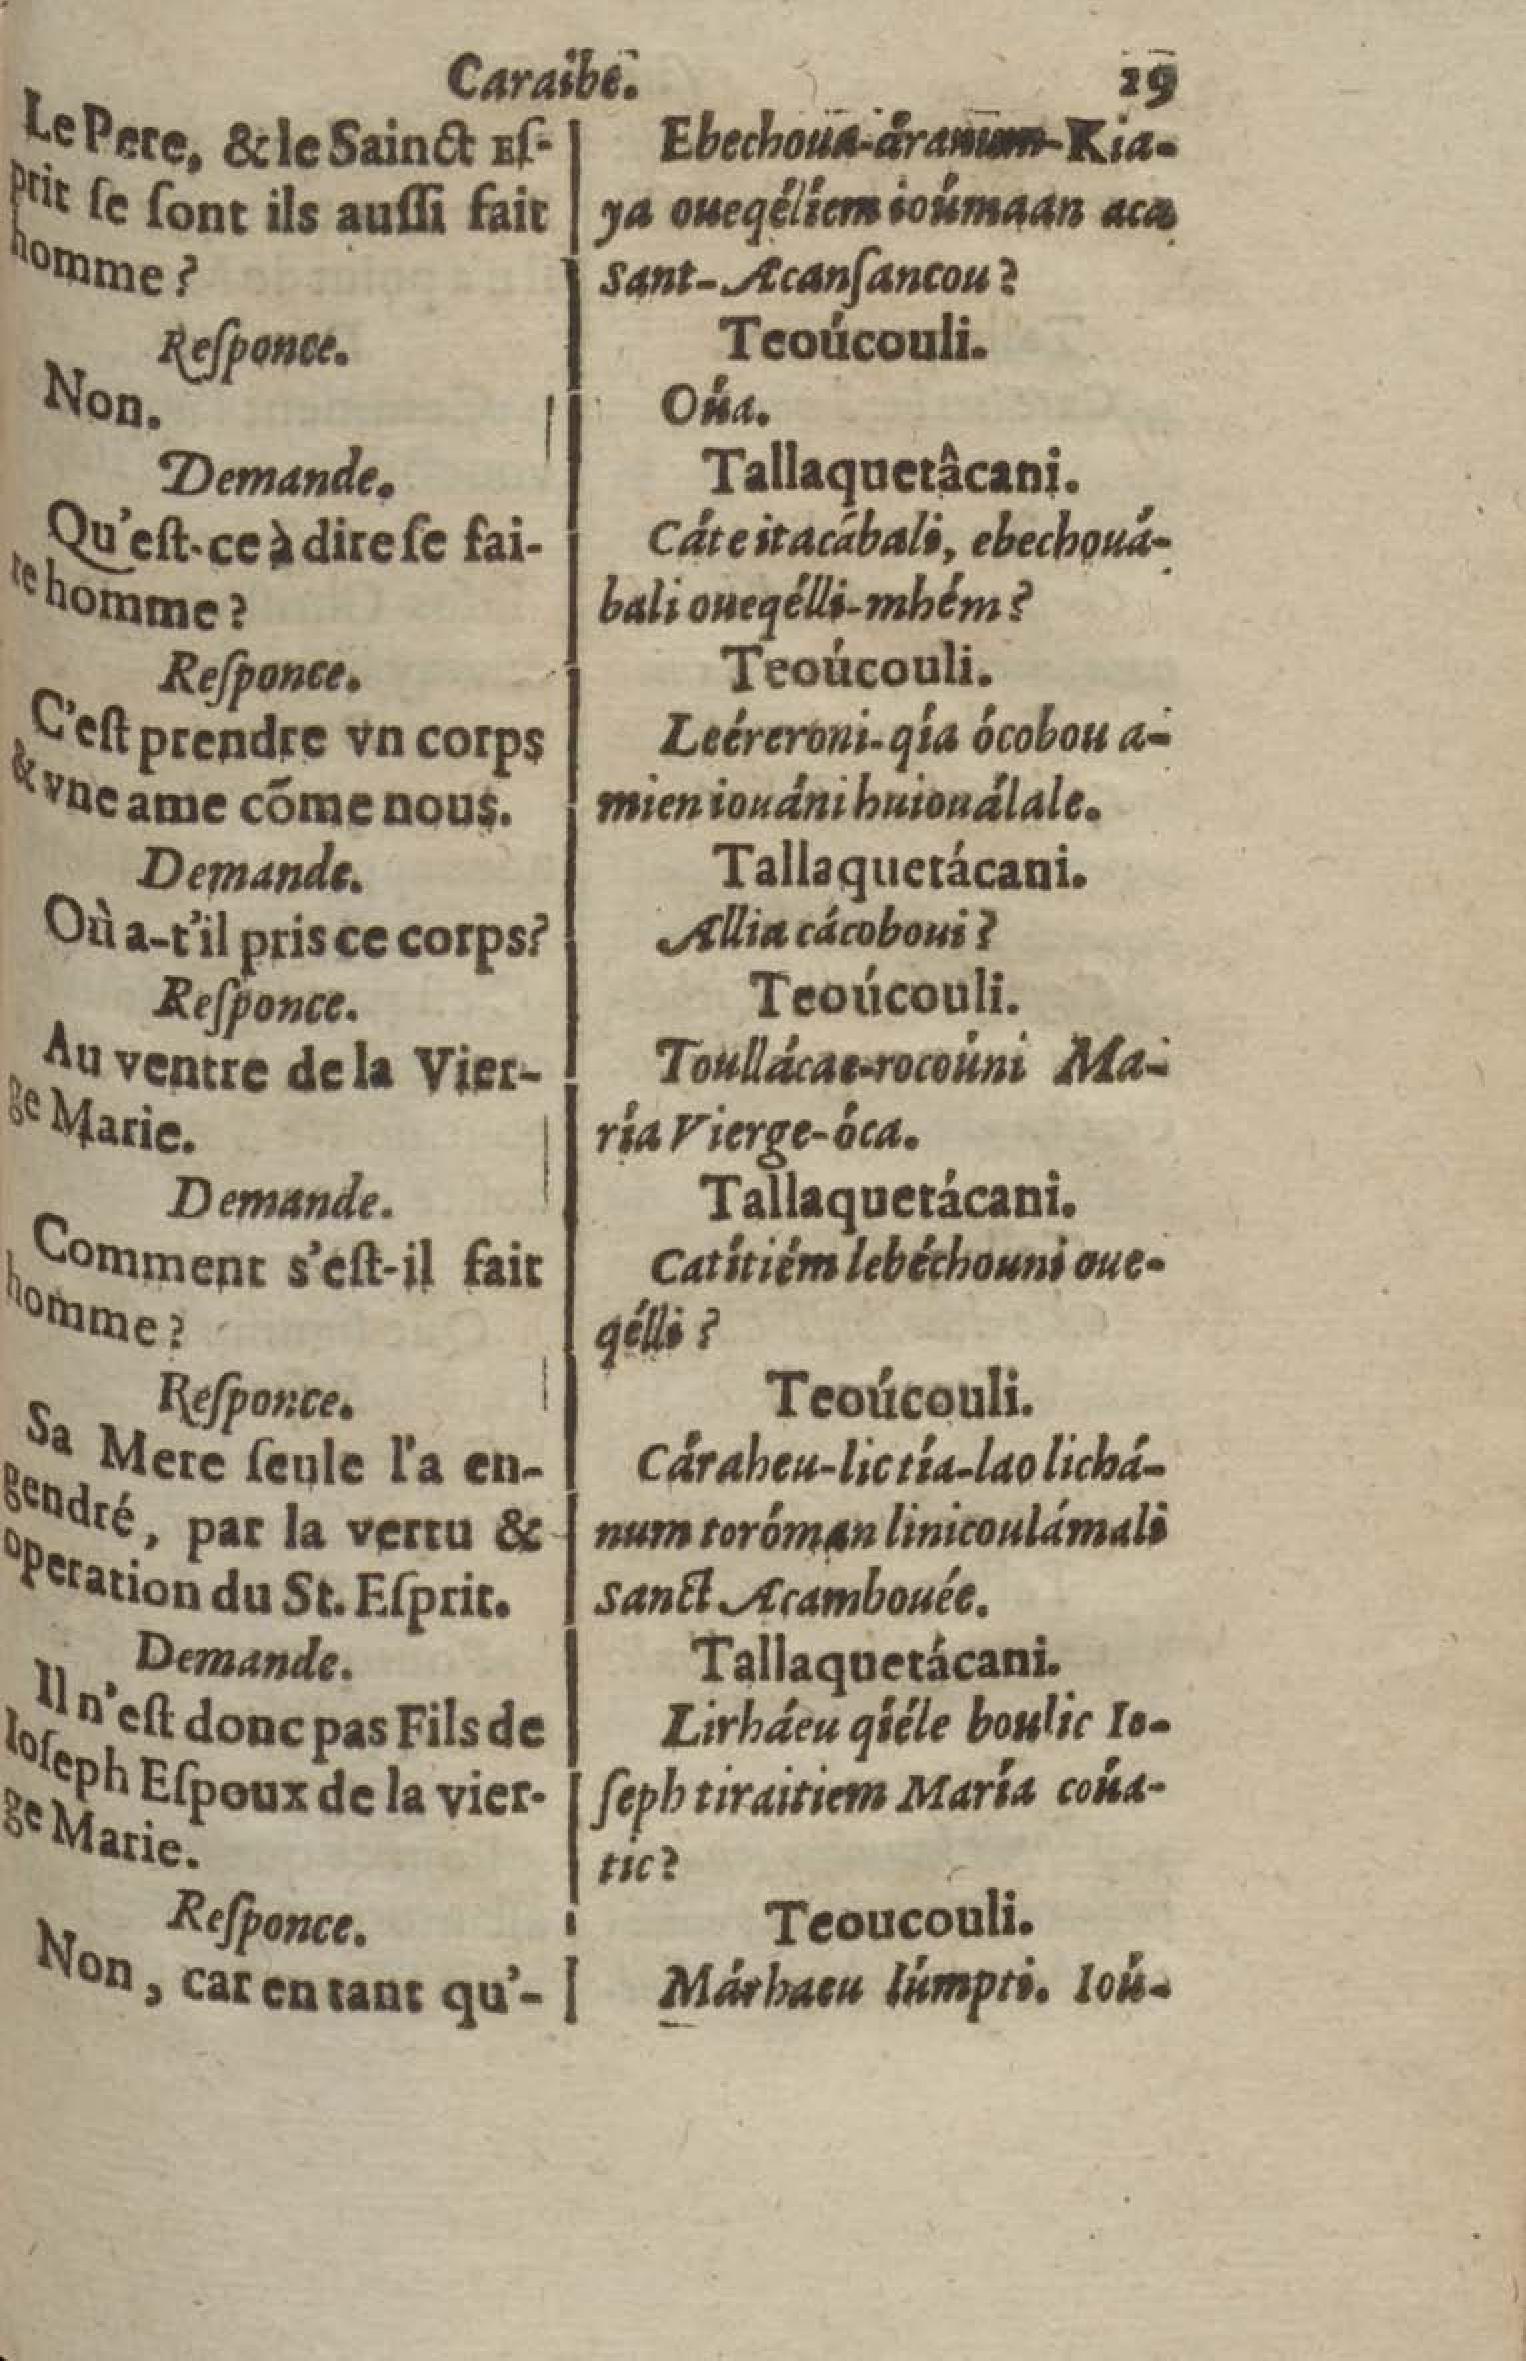 Caraibe. 19
Le Pere, & le Sainct Eſ-
prit ſe ſont ils auſſi fait
homme ?
Reſponce.
Non.
Demande.
Qu'eſt-ce à dire ſe fai-
re homme ?
Reſponce.
C'eſt prendre vn corps
& vne ame cõme nous.
Demande.
Où a-t'il pris ce corps?
Reſponce.
Au ventre de la Vier-
ge Marie.
Demande.
Comment s'eſt-il fait
homme ?
Reſponce.
Sa Mere ſeule l'a en-
gendré, par la vertu &
operation du St. Eſprit.
Demande.
Il n'eſt donc pas Fils de
Ioſeph Eſpoux de la vier-
ge Marie.
Reſponce.
Non, car en tant qu'-
Ebechoüa-áranum-Kia-
ya oueqéliem ioúmaan aca
sant-Acanſancou ?
Teoúcouli.
Oüa.
Tallaquetâcani.
Cáte itacábali, ebechouá-
bali oueqélli-mhém ?
Teoúcouli.
Leéreroni-qía ócobou a-
mien iouáni huiouálale.
Tallaquetácani.
Allia cácoboui ?
Teoúcouli.
Toullácae-rocoúni Ma-
ría Vierge-óca.
Tallaquetácani.
Catítiém lebéchouni oue-
qélli ?
Teoúcouli.
Cáraheu-lic tía-lao lichá-
num toróman linicoulámali
Sanct Acambouée.
Tallaquetácani.
Lirháeu qiéle boulic Io-
ſeph tiraitiem María coüa-
tic ?
Teoucouli.
Márhaeu lúmpti. Ioú-